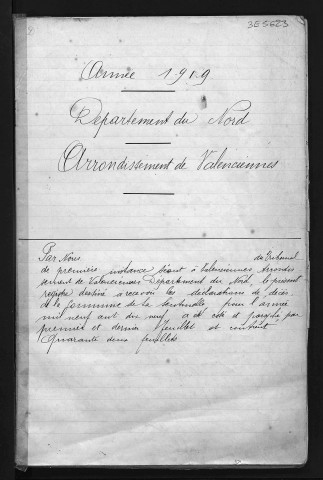 3E5623
Année 1919
Département du Nord
Arrondissement de Valenciennes
Par Nous du Tribunal
de première instance séant à Valenciennes Arrondis
sement de Valenciennes Département du Nord, le présent
registre destiné à recevoir les déclarations de décès
de la commune de la Sentinelle pour l'année
mil neuf cent dix neuf, a été coté et paraphé par
premier et dernier feuillet et contient
Quarante deux feuillets